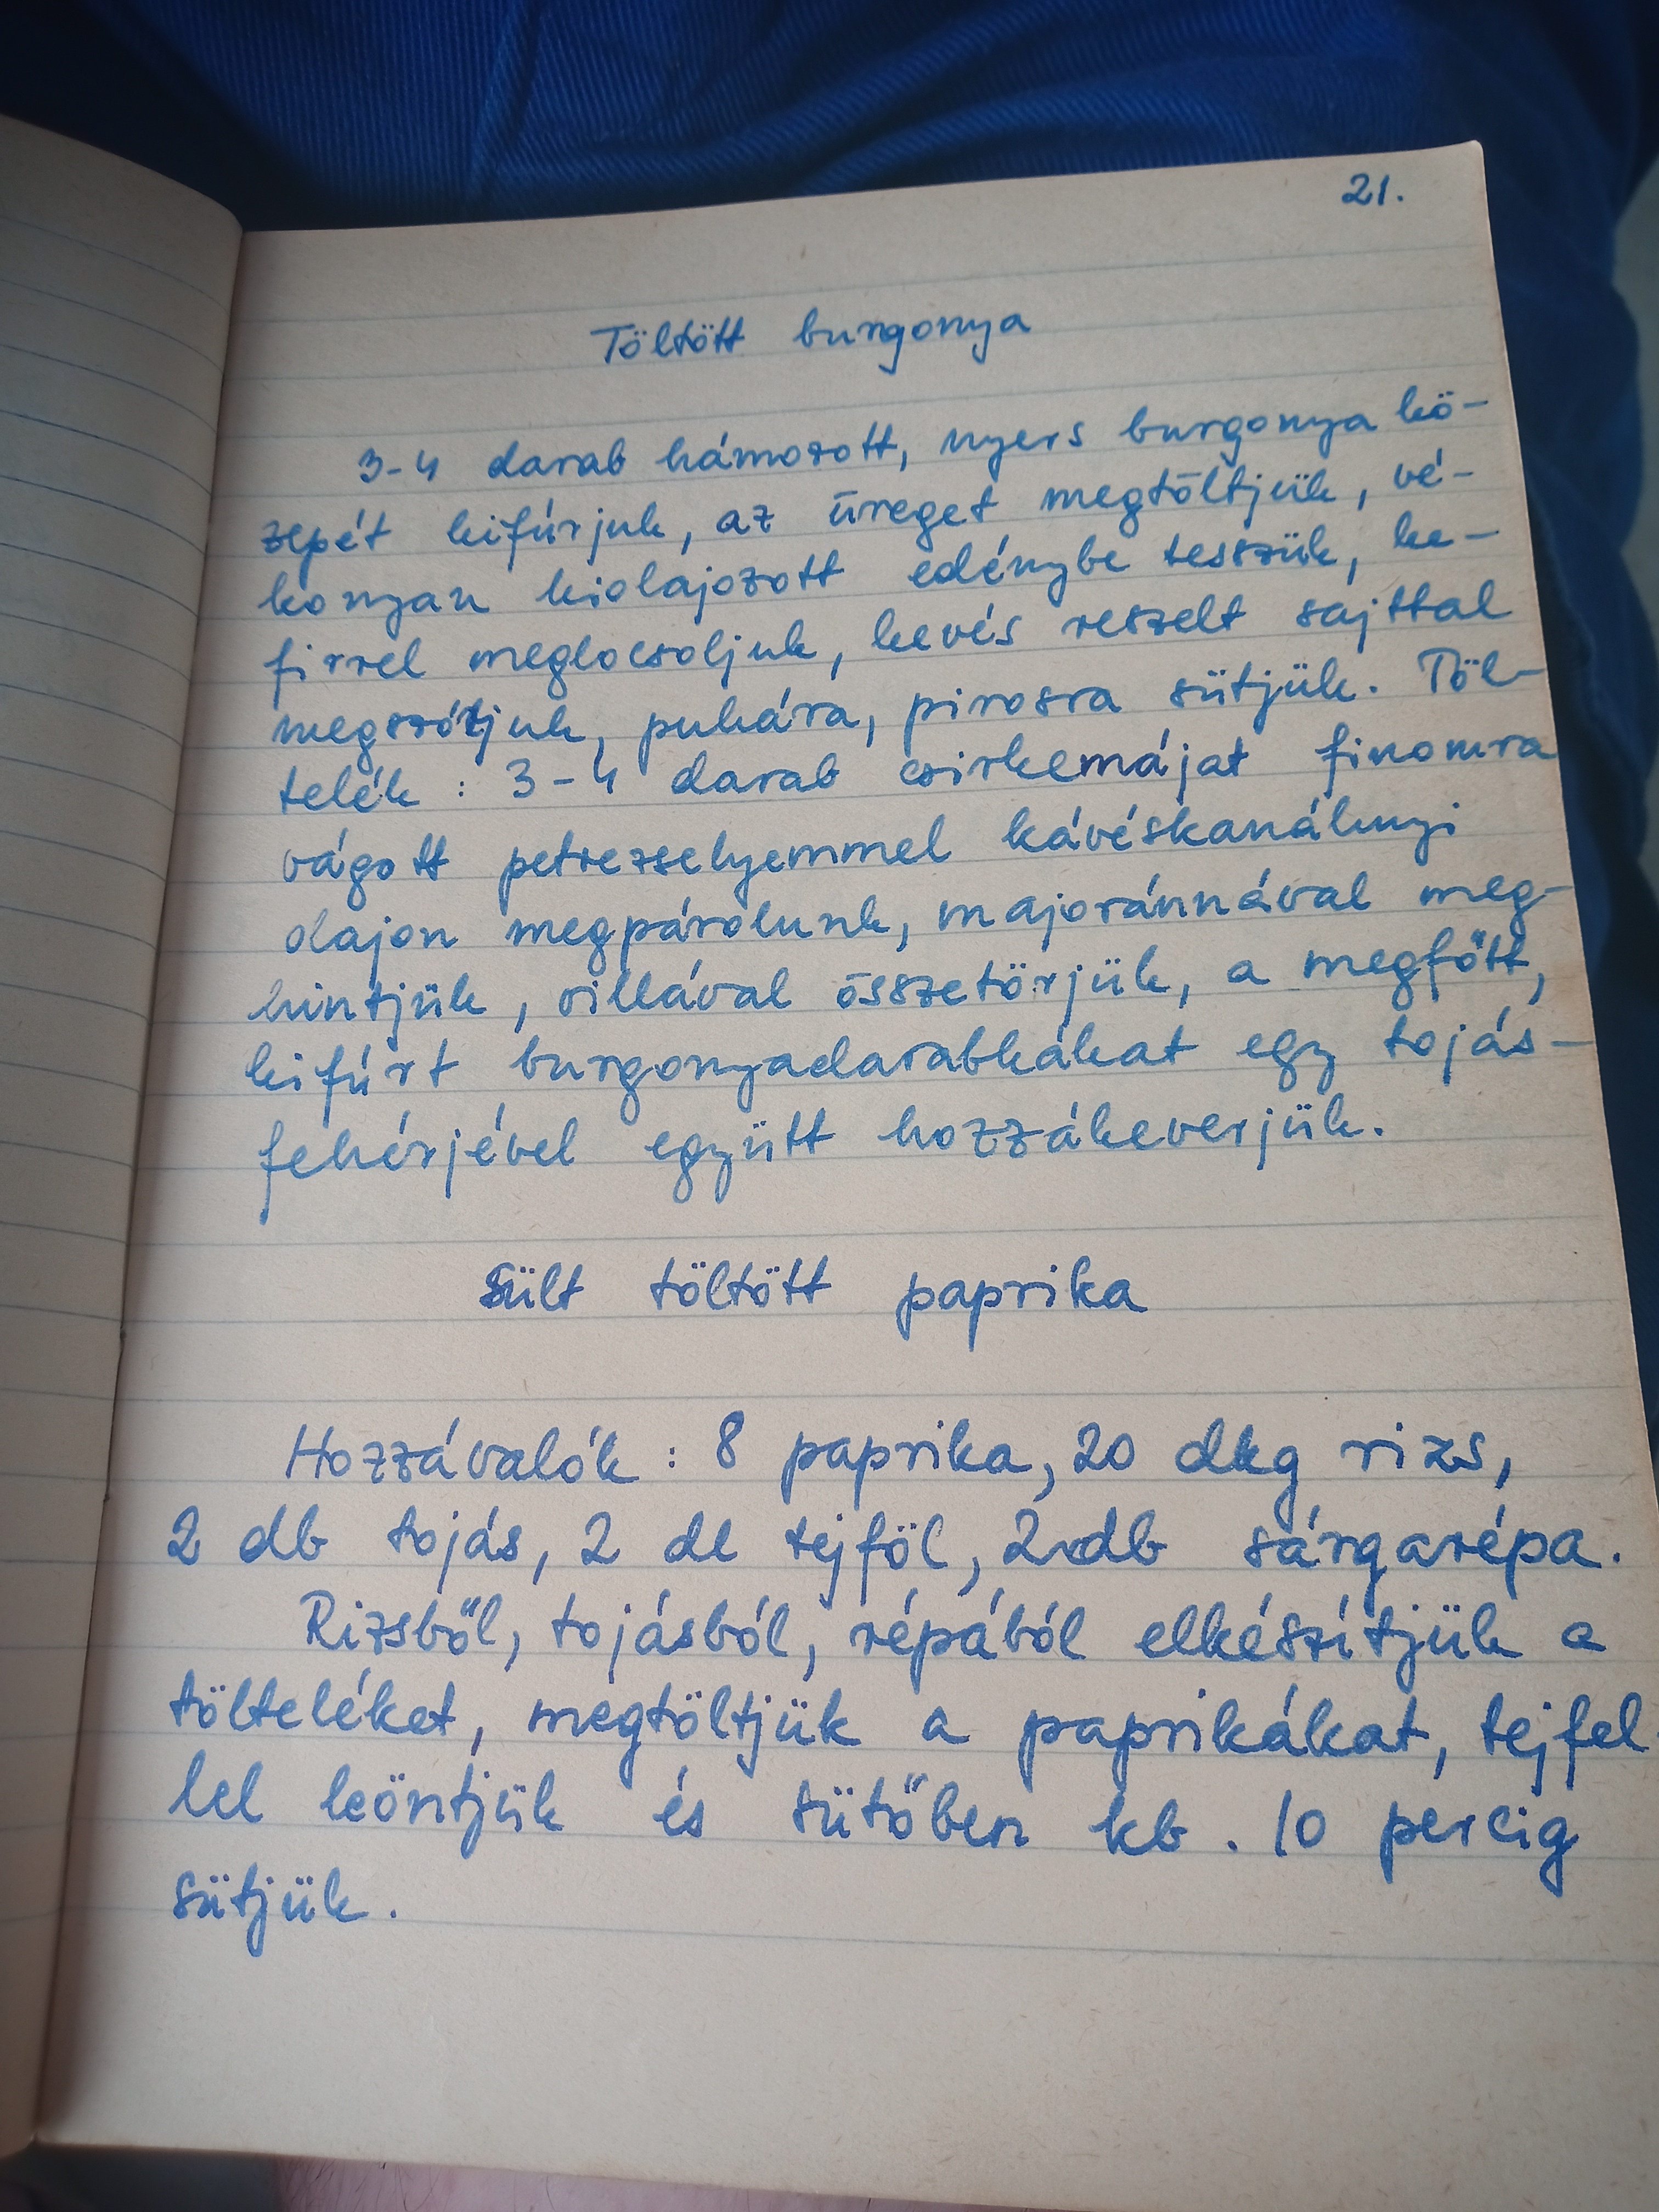 21.
Töltött burgonya
3-4 darab hámozott, nyers burgonya kö-
zepét kifúrjuk, az üreget megtöltjük, vé-
konyan kiolajozott edénybe tesszük, ke-
firrel meglocsoljuk, kevés reszelt sajttal
megszórjuk, puhára, pirosra sütjük. Töl-
telék : 3-4 darab csirkemájat finomra
vágott petrezselyemmel kávéskanálnyi
olajon megpárolunk, majoránnával meg-
hintjük, villával összetörjük, a megfőtt,
kifúrt burgonyadarabkákat egy tojás-
fehérjével együtt hozzákeverjük.
Sült töltött paprika
Hozzávalók : 8 paprika, 20 dkg rizs,
2 db tojás, 2 dl tejföl, 2 db sárgarépa.
Rizsből, tojásból, répából elkészítjük a
tölteléket, megtöltjük a paprikákat, tejfel-
lel leöntjük és sütőben kb. 10 percig
sütjük.